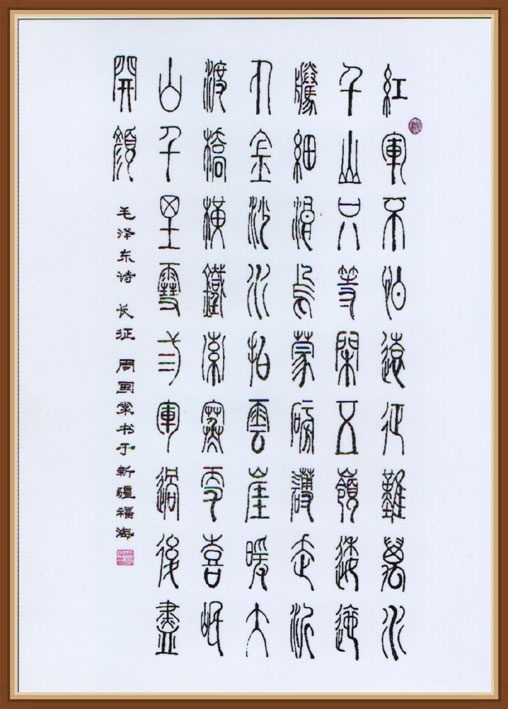 紅軍不怕遠征難萬水
千山只等閑五嶺逶迤
騰細浪烏蒙磅礴走泥
丸金沙水拍雲崖暖大
渡橋橫鐵索寒更喜岷
山千里雪三軍過後盡
開顏
毛泽东诗 长征 周國棠书于新疆福海